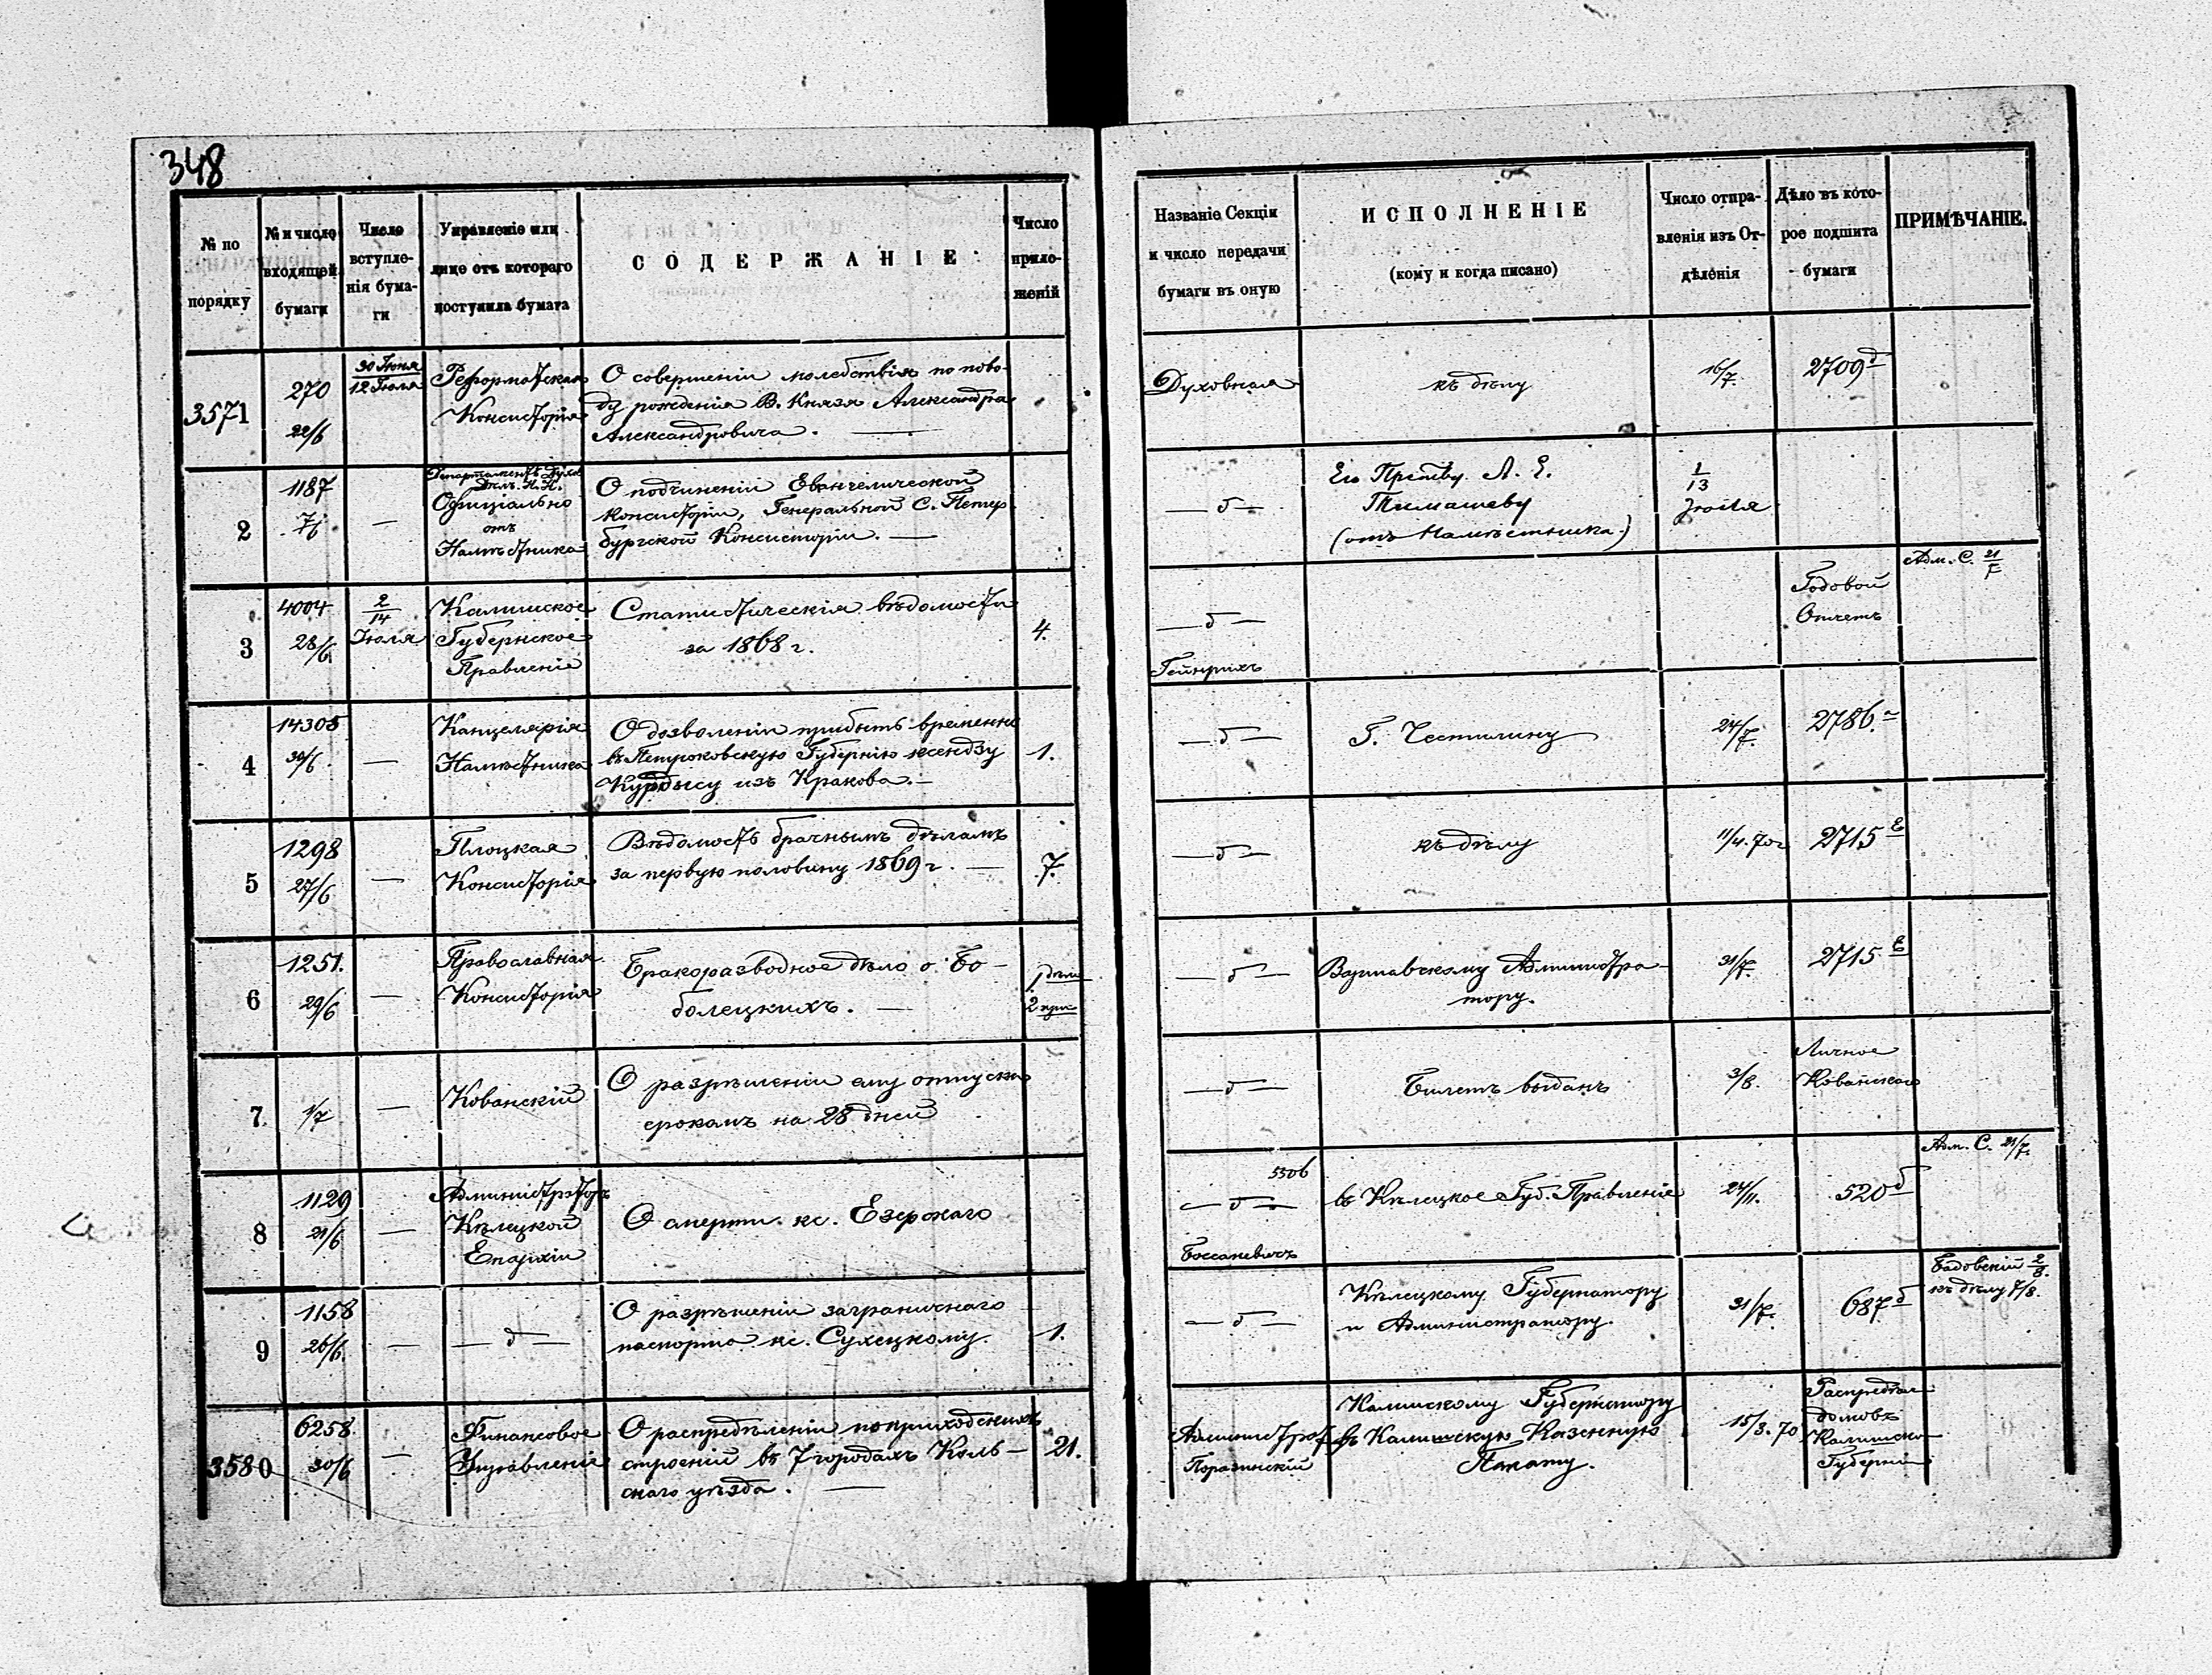 348
№ по порядку
№ и число входящей бумаги
Число вступленія бумаги
Управленіе или лице отъ котораго поступила бумага
СОДЕРЖАНІЕ
Число приложеній
Названіе Секціи и число передачи бумаги въ оную
ИСПОЛНЕНІЕ
(кому и когда писано)
Число отправленія изъ Отдѣленія
Дѣло въ которое подшита бумаги
ПРИМѢЧАНІЕ.
3571
270
22/6
30 Іюня
12 Іюля
Реформатская
Консисторія
О совершеніи молебствія по пово-
ду рожденія В. Князя Александра
Александровича. —
Духовная
къ дѣлу
16/7
2709 д
2
1187
7/6
—
Департаментъ Духов.
Дѣлъ И. И.
Офиціально
отъ
Намѣстника
О подчиненіи Евангелической
Консисторіи, Генеральной С. Петер-
бургской Консисторіи. —
— д —
Его Прев-тву А. Е.
Тимашеву
(отъ Намѣстника)
1
13
Іюля
3
4004
28/6
2
14
Іюля
Калишское
Губернское
Правленіе
Статистическія вѣдомости
за 1868 г.
4.
— д —
Гейнрихъ
Годовой
Отчетъ
Адм. С. 21/7
4
14305
30/6
—
Канцелярія
Намѣстника
О дозволеніи прибыть временно
въ Петроковскую Губернію ксендзу
Курдысу изъ Кракова. —
1.
— д —
Г. Честилину
24/7.
2786. а
5
1298
27/6
—
Плоцкая
Консисторія
Вѣдомость брачнымъ дѣламъ
за первую половину 1869 г. —
7.
— д —
къ дѣлу
11/4. 70 г
2715 Е
6
1251.
29/6
—
Православная
Консисторія
Бракоразводное дѣло о Бо-
болецкихъ. —
1 дѣло
2
— д —
Варшавскому Администра-
тору.
31/7.
2715 Е
7.
1/7
—
Кованскій
О разрѣшеніи ему отпуска
срокомъ на 28 дней
— д —
Билетъ выданъ
3/8.
Личное
Кованскаго
8
1129
21/6
—
Администраторъ
Кѣлецкой
Епархіи
О смерти кс. Езерскаго
5506
— д —
въ Кѣлецкое Губ. Правленіе
24/11.
520 д
Адм. С. 21/7.
9
1158
26/6.
—
— д —
О разрѣшеніи заграничнаго
паспорта кс. Сухецкому.
1.
— д —
Кѣлецкому Губернатору
и Администратору.
31/7.
687 д
Бадовскій 2/8.
къ дѣлу 7/8.
3580
6258.
30/6
—
Финансовое
Управленіе
О распредѣленіи поприходскихъ
строеній въ 7 городахъ Коль-
скаго уѣзда. —
21.
Поразинскій
Калишскому Губернатору
въ Калишскую Казенную
Палату.
15/3. 70
Распредѣл
домовъ
Калишской
Губерніи